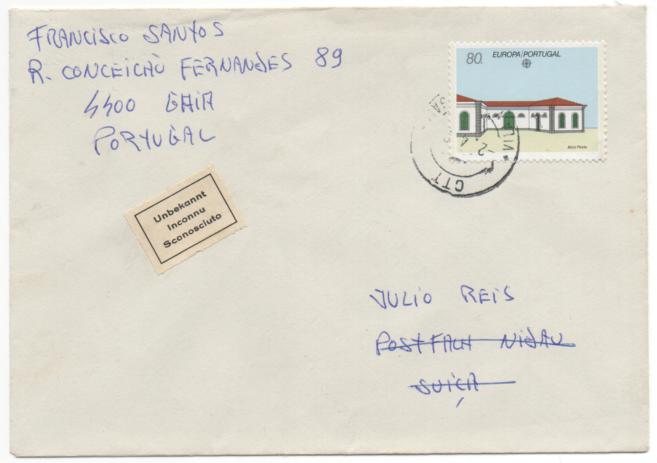 FRANCISCO SANTOS
R. CONCEIÇÃO FERNANDES 89
4400 GAIA
PORTUGAL
80. EUROPA/PORTUGAL
CTT
Unbekannt
Inconnu
Sconosciuto
JULIO REIS
POSTFACH NIDAU
SUIÇA